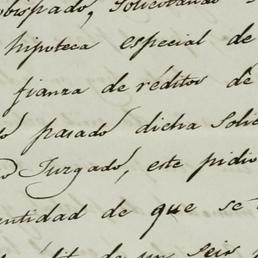 obispado, Solicitando
hipoteca especial de
fianza de réditos de
pasado dicha Soli
Juzgado, este pidio
entidad de que se
de un seis